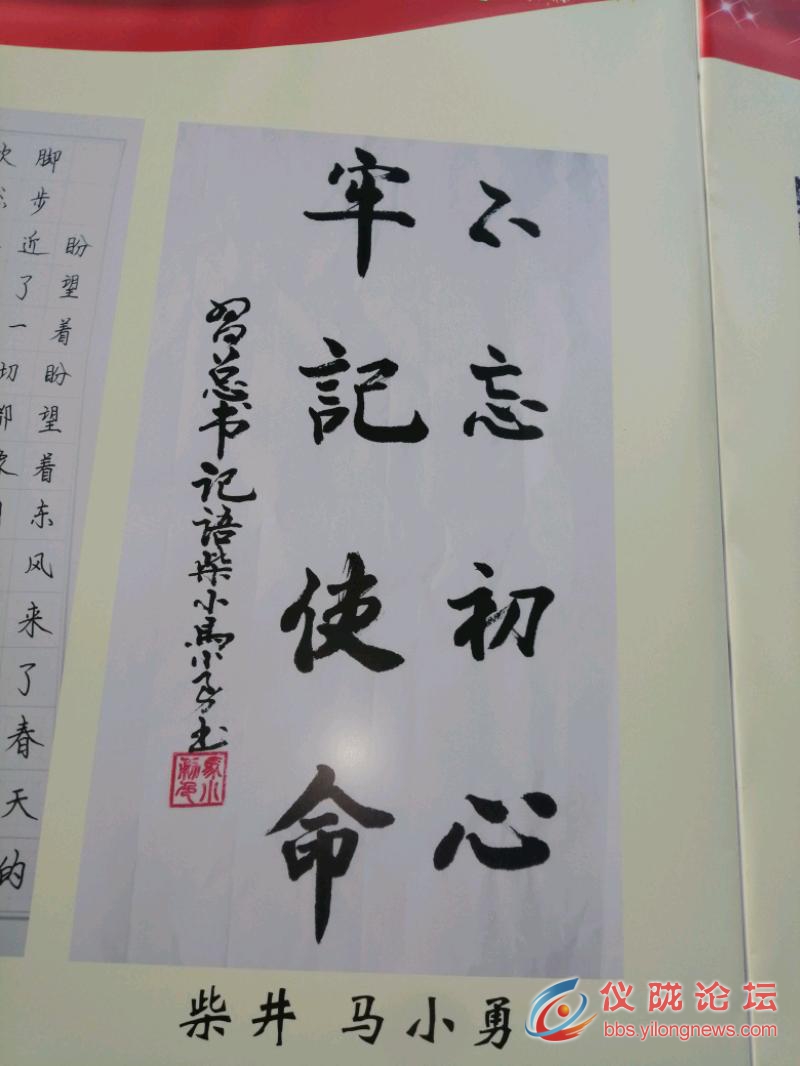 不忘初心
牢記使命
習总书记語柴小馬小勇书
柴井 马小勇
盼望着盼望着东风来了春天的
脚步近了一切都象
仪陇论坛
bbs.yilongnews.com